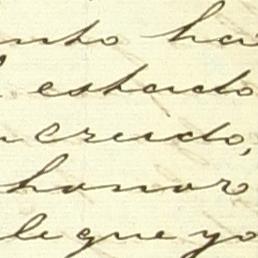 nto ha
estado
creido,
honor
le que yo